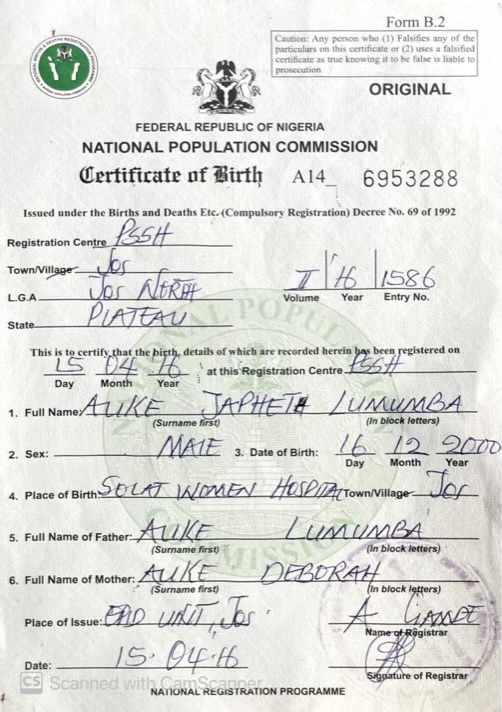 Form B.2
Caution: Any person who (1) Falsifies any of the
particulars on this certificate or (2) uses a falsified
certificate as true knowing it to be false is liable to
prosecution
ORIGINAL
FEDERAL REPUBLIC OF NIGERIA
NATIONAL POPULATION COMMISSION
Certificate of Birth A14_ 6953288
Issued under the Births and Deaths Etc. (Compulsory Registration) Decree No. 69 of 1992
Registration Centre PSSH
Town/Village Jos
L.G.A Jos NORTH
State PLATEAU
II 16 1586
Volume Year Entry No.
This is to certify that the birth, details of which are recorded herein has been registered on
15 04 16 at this Registration Centre PSSH
Day Month Year
1. Full Name: AUKE JAPHETH LUMUMBA
(Surname first) (In block letters)
2. Sex: MALE 3. Date of Birth: 16 12 2000
Day Month Year
4. Place of Birth: SOLAT WOMEN HOSPITAL Town/Village Jos
5. Full Name of Father: AUKE LUMUMBA
(Surname first) (In block letters)
6. Full Name of Mother: AUKE DEBORAH
(Surname first) (In block letters)
Place of Issue: UNIT, Jos. A
Name of Registrar
Date: 15.04.16
Signature of Registrar
CS Scanned with CamScanner
NATIONAL REGISTRATION PROGRAMME